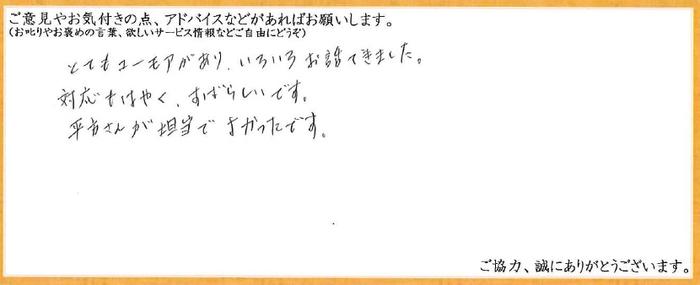 ご意見やお気付きの点、アドバイスなどがあればお願いします。
(お叱りやお褒めの言葉、欲しいサービス情報などご自由にどうぞ)
とてもユーモアがあり、いろいろお話できました。
対応もはやく、すばらしいです。
平方さんが担当でよかったです。
ご協力、誠にありがとうございます。